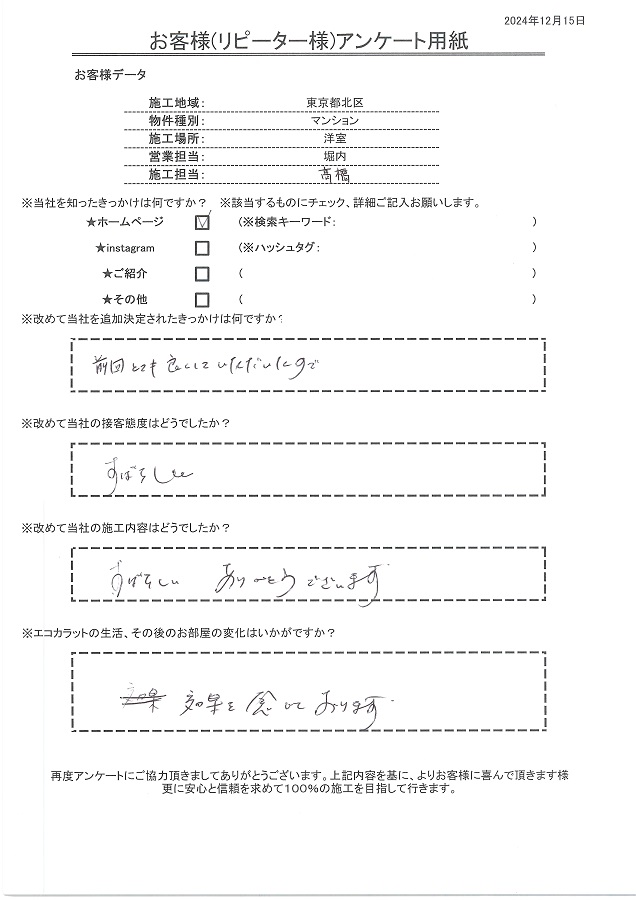 2024年12月15日
お客様(リピーター様)アンケート用紙
お客様データ
施工地域： 東京都北区
物件種別： マンション
施工場所： 洋室
営業担当： 堀内
施工担当： 高橋
※当社を知ったきっかけは何ですか？ ※該当するものにチェック、詳細ご記入お願いします。
★ホームページ ☑ (※検索キーワード： )
★instagram □ (※ハッシュタグ： )
★ご紹介 □ ( )
★その他 □ ( )
※改めて当社を追加決定されたきっかけは何ですか？
前回とても良くしていただいたので
※改めて当社の接客態度はどうでしたか？
すばらしい
※改めて当社の施工内容はどうでしたか？
すばらしい ありがとうございます
※エコカラットの生活、その後のお部屋の変化はいかがですか？
効果を感じております
再度アンケートにご協力頂きましてありがとうございます。上記内容を基に、よりお客様に喜んで頂きます様
更に安心と信頼を求めて100%の施工を目指して行きます。